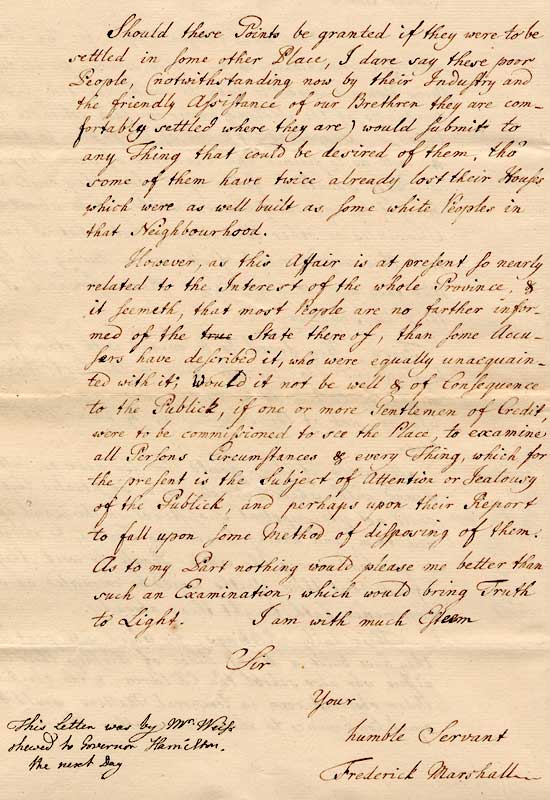 Should these Points be granted if they were to be
settled in some other Place, I dare say these poor
People, (notwithstanding now by their Industry and
the friendly Assistance of our Brethren they are com-
fortably settled where they are) would submit to
any Thing that could be desired of them, tho'
some of them have twice already lost their Houses
which were as well built as some white Peoples in
that Neighbourhood.
However, as this Affair is at present so nearly
related to the Interest of the whole Province, &
it seemeth, that most People are no farther infor-
med of the true State thereof, than some Accu-
sers have described it, who were equally unacquain-
ted with it; Would it not be well & of Consequence
to the Publick, if one or more Gentlemen of Credit,
were to be commissioned to see the Place, to examine
all Persons, Circumstances & every Thing, which for
the present is the Subject of Attention or Jealousy
of the Publick, and perhaps upon their Report
to fall upon some Method of disposing of them:
As to my Part nothing would please me better than
such an Examination, which would bring Truth
to Light. I am with much Esteem
Sir
Your
humble Servant
Frederick Marshall
This Letter was by Mr. Weiss
shewed to Governor Hamilton
the next Day